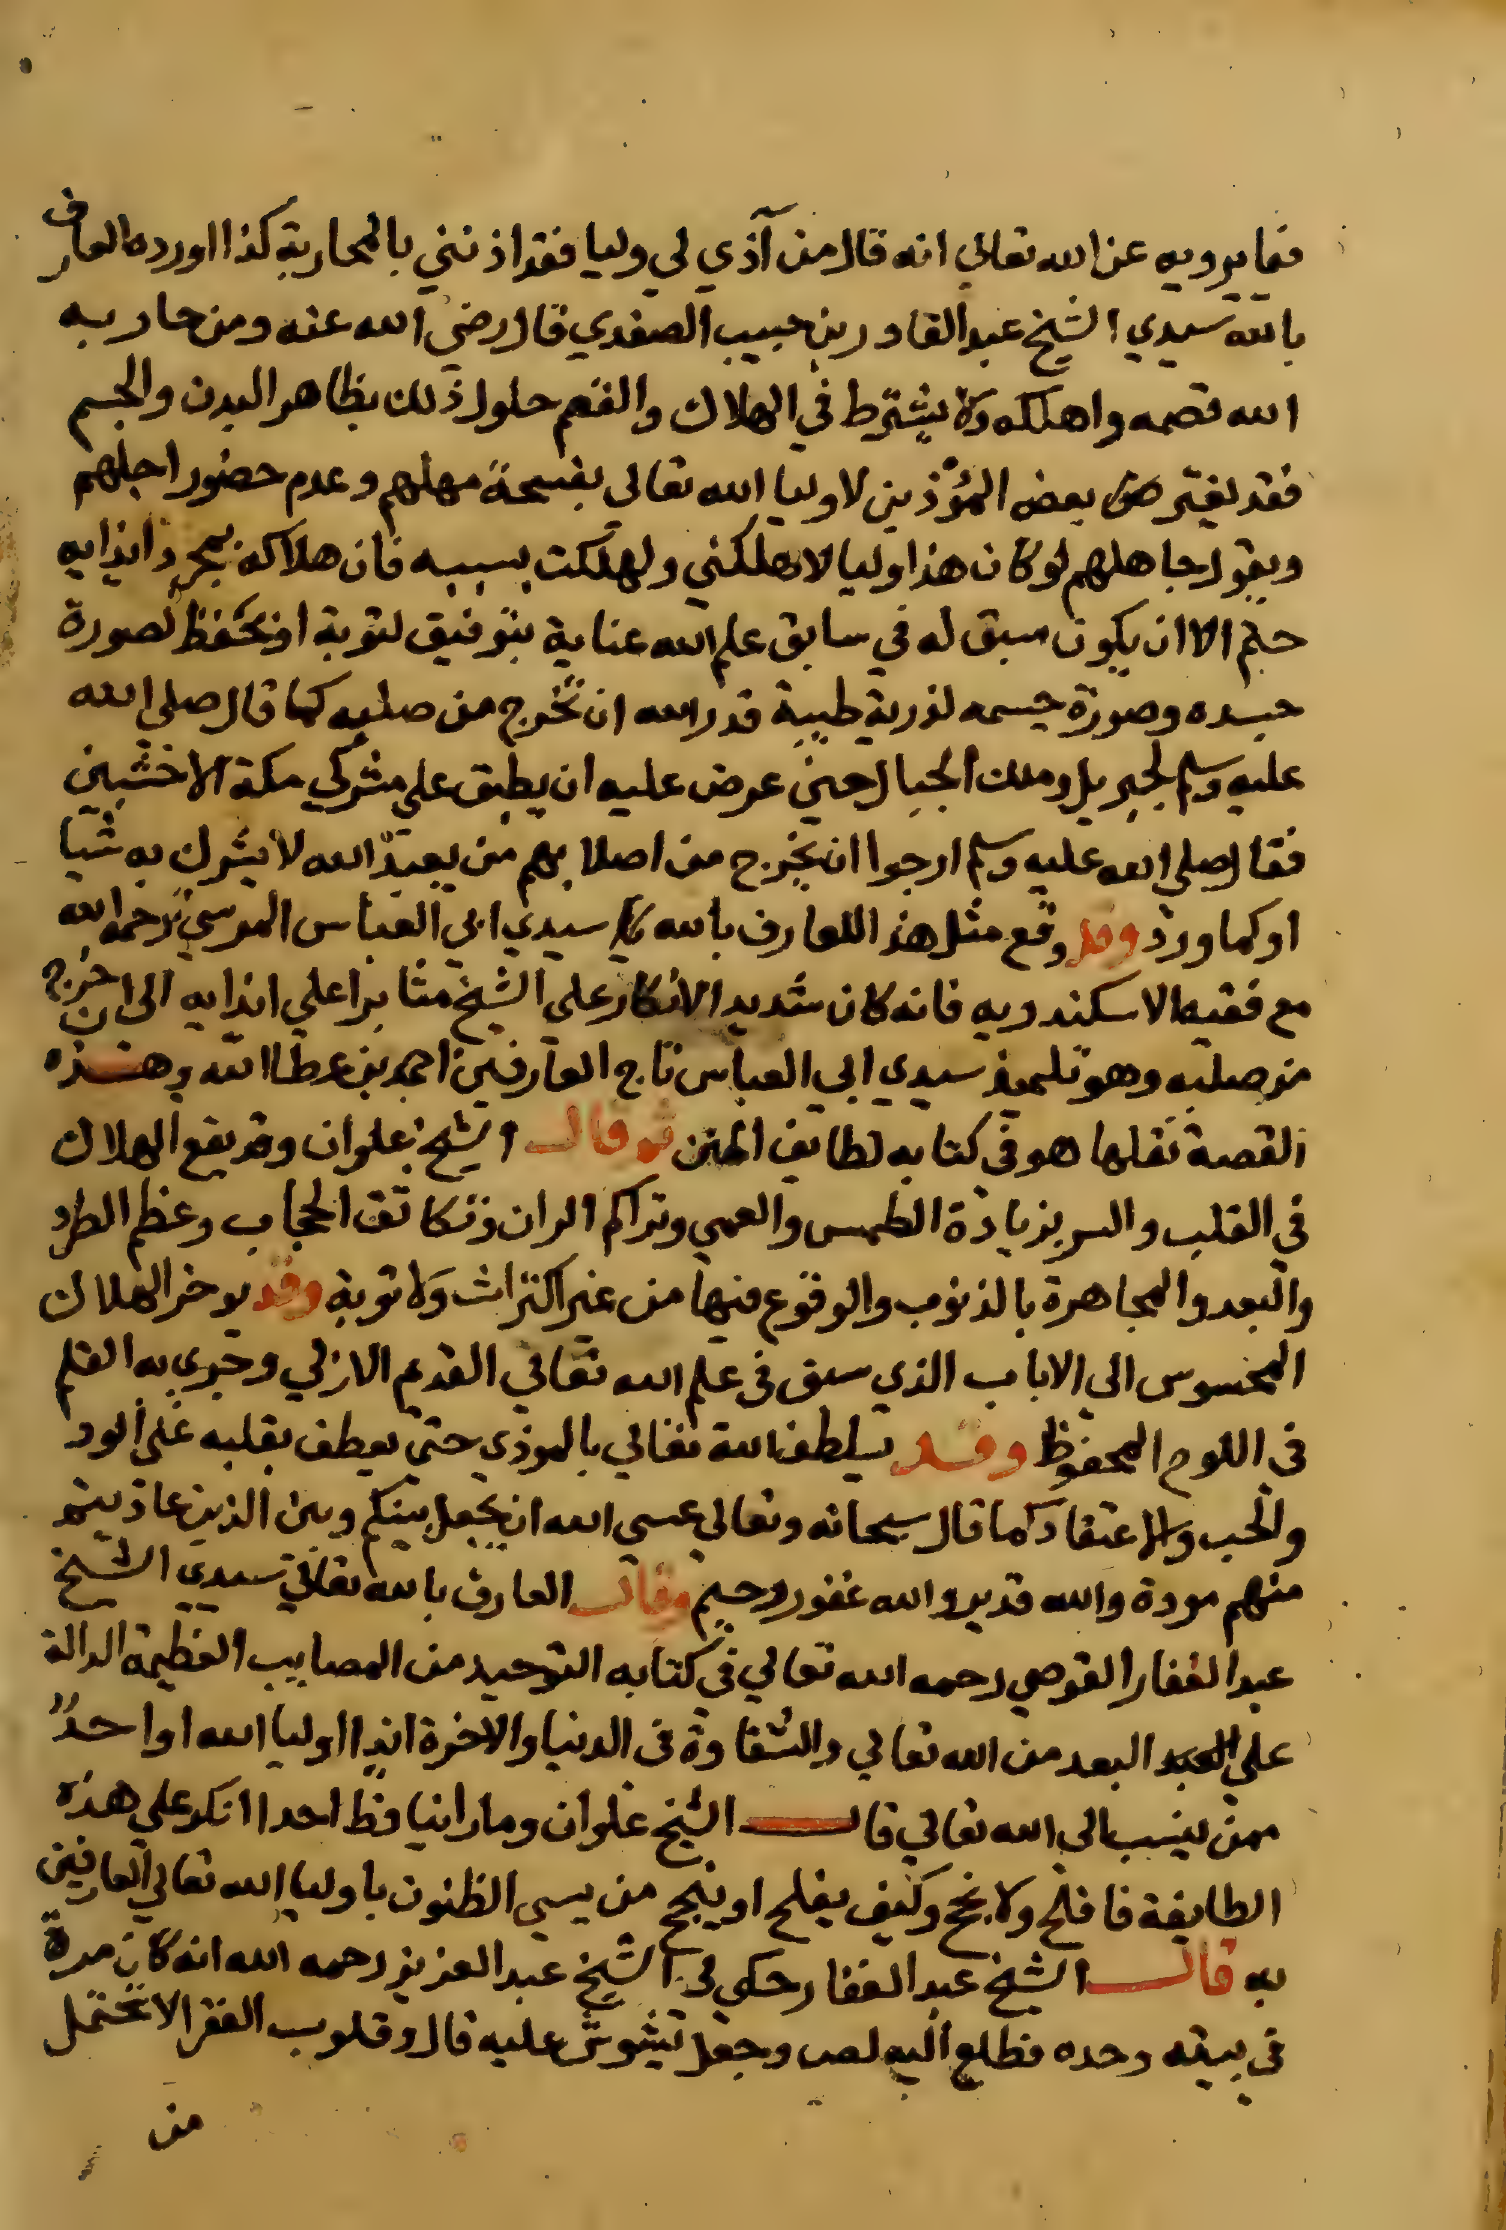 فيما يرويه عن الله تعالي انه قال من آذي لي وليا فقد اذنني بالمحاربة كذا اورده العارف
بالله سيدي الشيخ عبد القادر بن حبيب الصفدي قال رضي الله عنه ومن حاربه
الله قصمه واهلكه ولا يشترط في الهلاك والقصم حلول ذلك بظاهر البدن والجسم
فقد يغتر بعض المؤذين لاوليا الله تعالى بفسحة مهلهم وعدم حضور اجلهم
ويقول جاهلهم لو كان هذا وليا لاهلكني ولهلكت بسببه فان هلاكه بمجرد ايذايه
حتم الا ان يكون سبق له في سابق علم الله عناية بتوفيق لتوبة او بحفظ لصورة
جسده وصورة جسمه لذرية طيبة قدر الله ان تخرج من صلبه كما قال صلي الله
عليه وسلم لجبريل وملك الجبال حين عرض عليه ان يطبق على مشركي مكة الاخشبين
فقال صلي الله عليه وسلم ارجوا ان يخرج من اصلابهم من يعبد الله لا يشرك به شيا
او كما ورد وقد وقع مثل هذا للعارف بالله سيدي ابي العباس المرسي رحمه الله
مع فقيه الاسكندريه فانه كان شديد الانكار علي الشيخ مثابرا علي ايذايه الى ان خرج
من صلبه وهو تلميذ سيدي ابي العباس تاج العارفين احمد بن عطا الله وهذه
القصة نقلها هو في كتابه لطايف المنن ثم قال الشيخ علوان وقد يقع الهلاك
في القلب والسر بزيادة الطمس والعمي وتراكم الران وتكاثف الحجاب وعظم الطرد
والبعد والمجاهرة بالذنوب والوقوع فيها من غير اكتراث ولا توبة وقد يوخر الهلاك
المحسوس الي الاباب الذي سبق في علم الله تعالي القديم الازلي وجري به القلم
في اللوح المحفوظ وقد يلطف الله تعالي بالموذي حتى يعطف بقلبه علي الود
والحب والاعتقاد كما قال سبحانه وتعالي عسي الله ان يجعل بينكم وبين الذين عاديتم
منهم مودة والله قدير والله غفور رحيم وقال العارف بالله تعالي سيدي الشيخ
عبد الغفار القوصي رحمه الله تعالي في كتابه التوحيد من المصايب العظيمة الدالة
علي العبد البعد من الله تعالي والشقاوة في الدنيا والاخرة ايذا اوليا الله او احدٌ
ممن ينسب الي الله تعالي قال الشيخ علوان وما راينا قط احدا انكر علي هذه
الطايفة فافلح ولا نجح وكيف يفلح او ينجح من يسي الظنون باوليا الله تعالي العارفين
به قال الشيخ عبد الغفار حكي لي الشيخ عبد العزيز رحمه الله انه كان مرة
في بيته وحده فطلع اليه لص وجعل يشوش عليه قال وقلوب الفقرا لا تحتمل
من